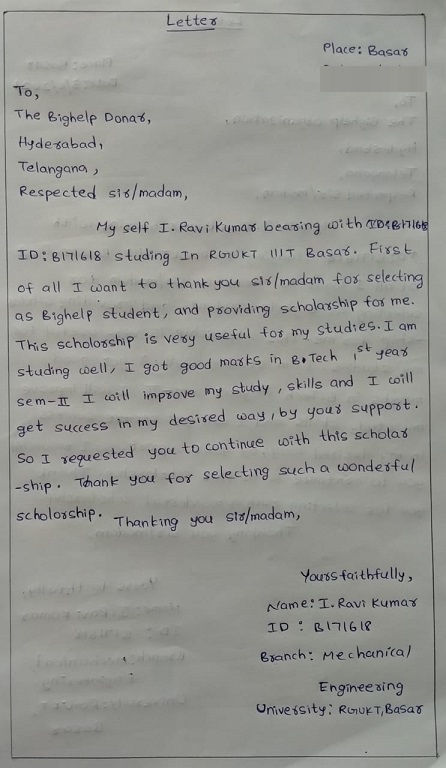 Letter
Place: Basar
To,
The Bighelp Donar,
Hyderabad,
Telangana,
Respected sir/madam,
My self I. Ravi Kumar bearing with
ID: B171618 studing In RGUKT IIIT Basar. First
of all I want to thank you sir/madam for selecting
as Bighelp student, and providing scholarship for me.
This scholorship is very useful for my studies. I am
studing well, I got good marks in B.Tech 1st year
sem-II I will improve my study, skills and I will
get success in my desired way, by your support.
So I requested you to continue with this scholar
-ship. Thank you for selecting such a wonderful
scholorship. Thanking you sir/madam,
Yours faithfully,
Name: I. Ravi Kumar
ID : B171618
Branch: Mechanical
Engineering
University: RGUKT, Basar